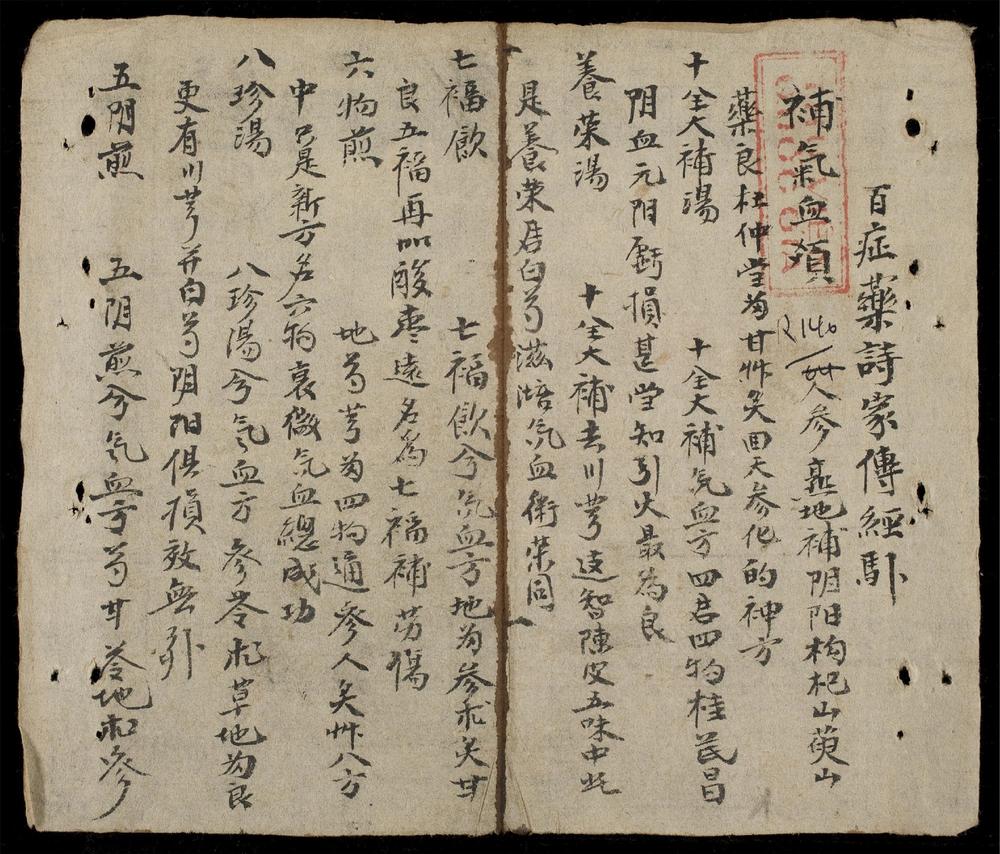 百症藥詩家傳經
補氣血類
R 140
人參熟地補阴阳枸杞山萸山
藥良杜仲當归甘艸炙回天參化的神方
十全大補湯 十全大補气血方四君四物桂芪昌
阴血元阳虧損甚當知引火最為良
養荣湯 十全大補去川芎逺智陳皮五味中此
是養荣君白芍滋培气血衛荣同
七福飲 七福飲兮气血方地归參朮炙甘
良五福再加酸枣遠名為七福補劳傷
六物煎 地芍芎归四物通參人炙艸八方
中只是新方名六物衰微气血總成功
八珍湯 八珍湯兮气血方參苓朮草地归良
更有川芎并白芍阴阳俱損效無
五阴煎 五阴煎兮气血亏芍甘苓地朮參